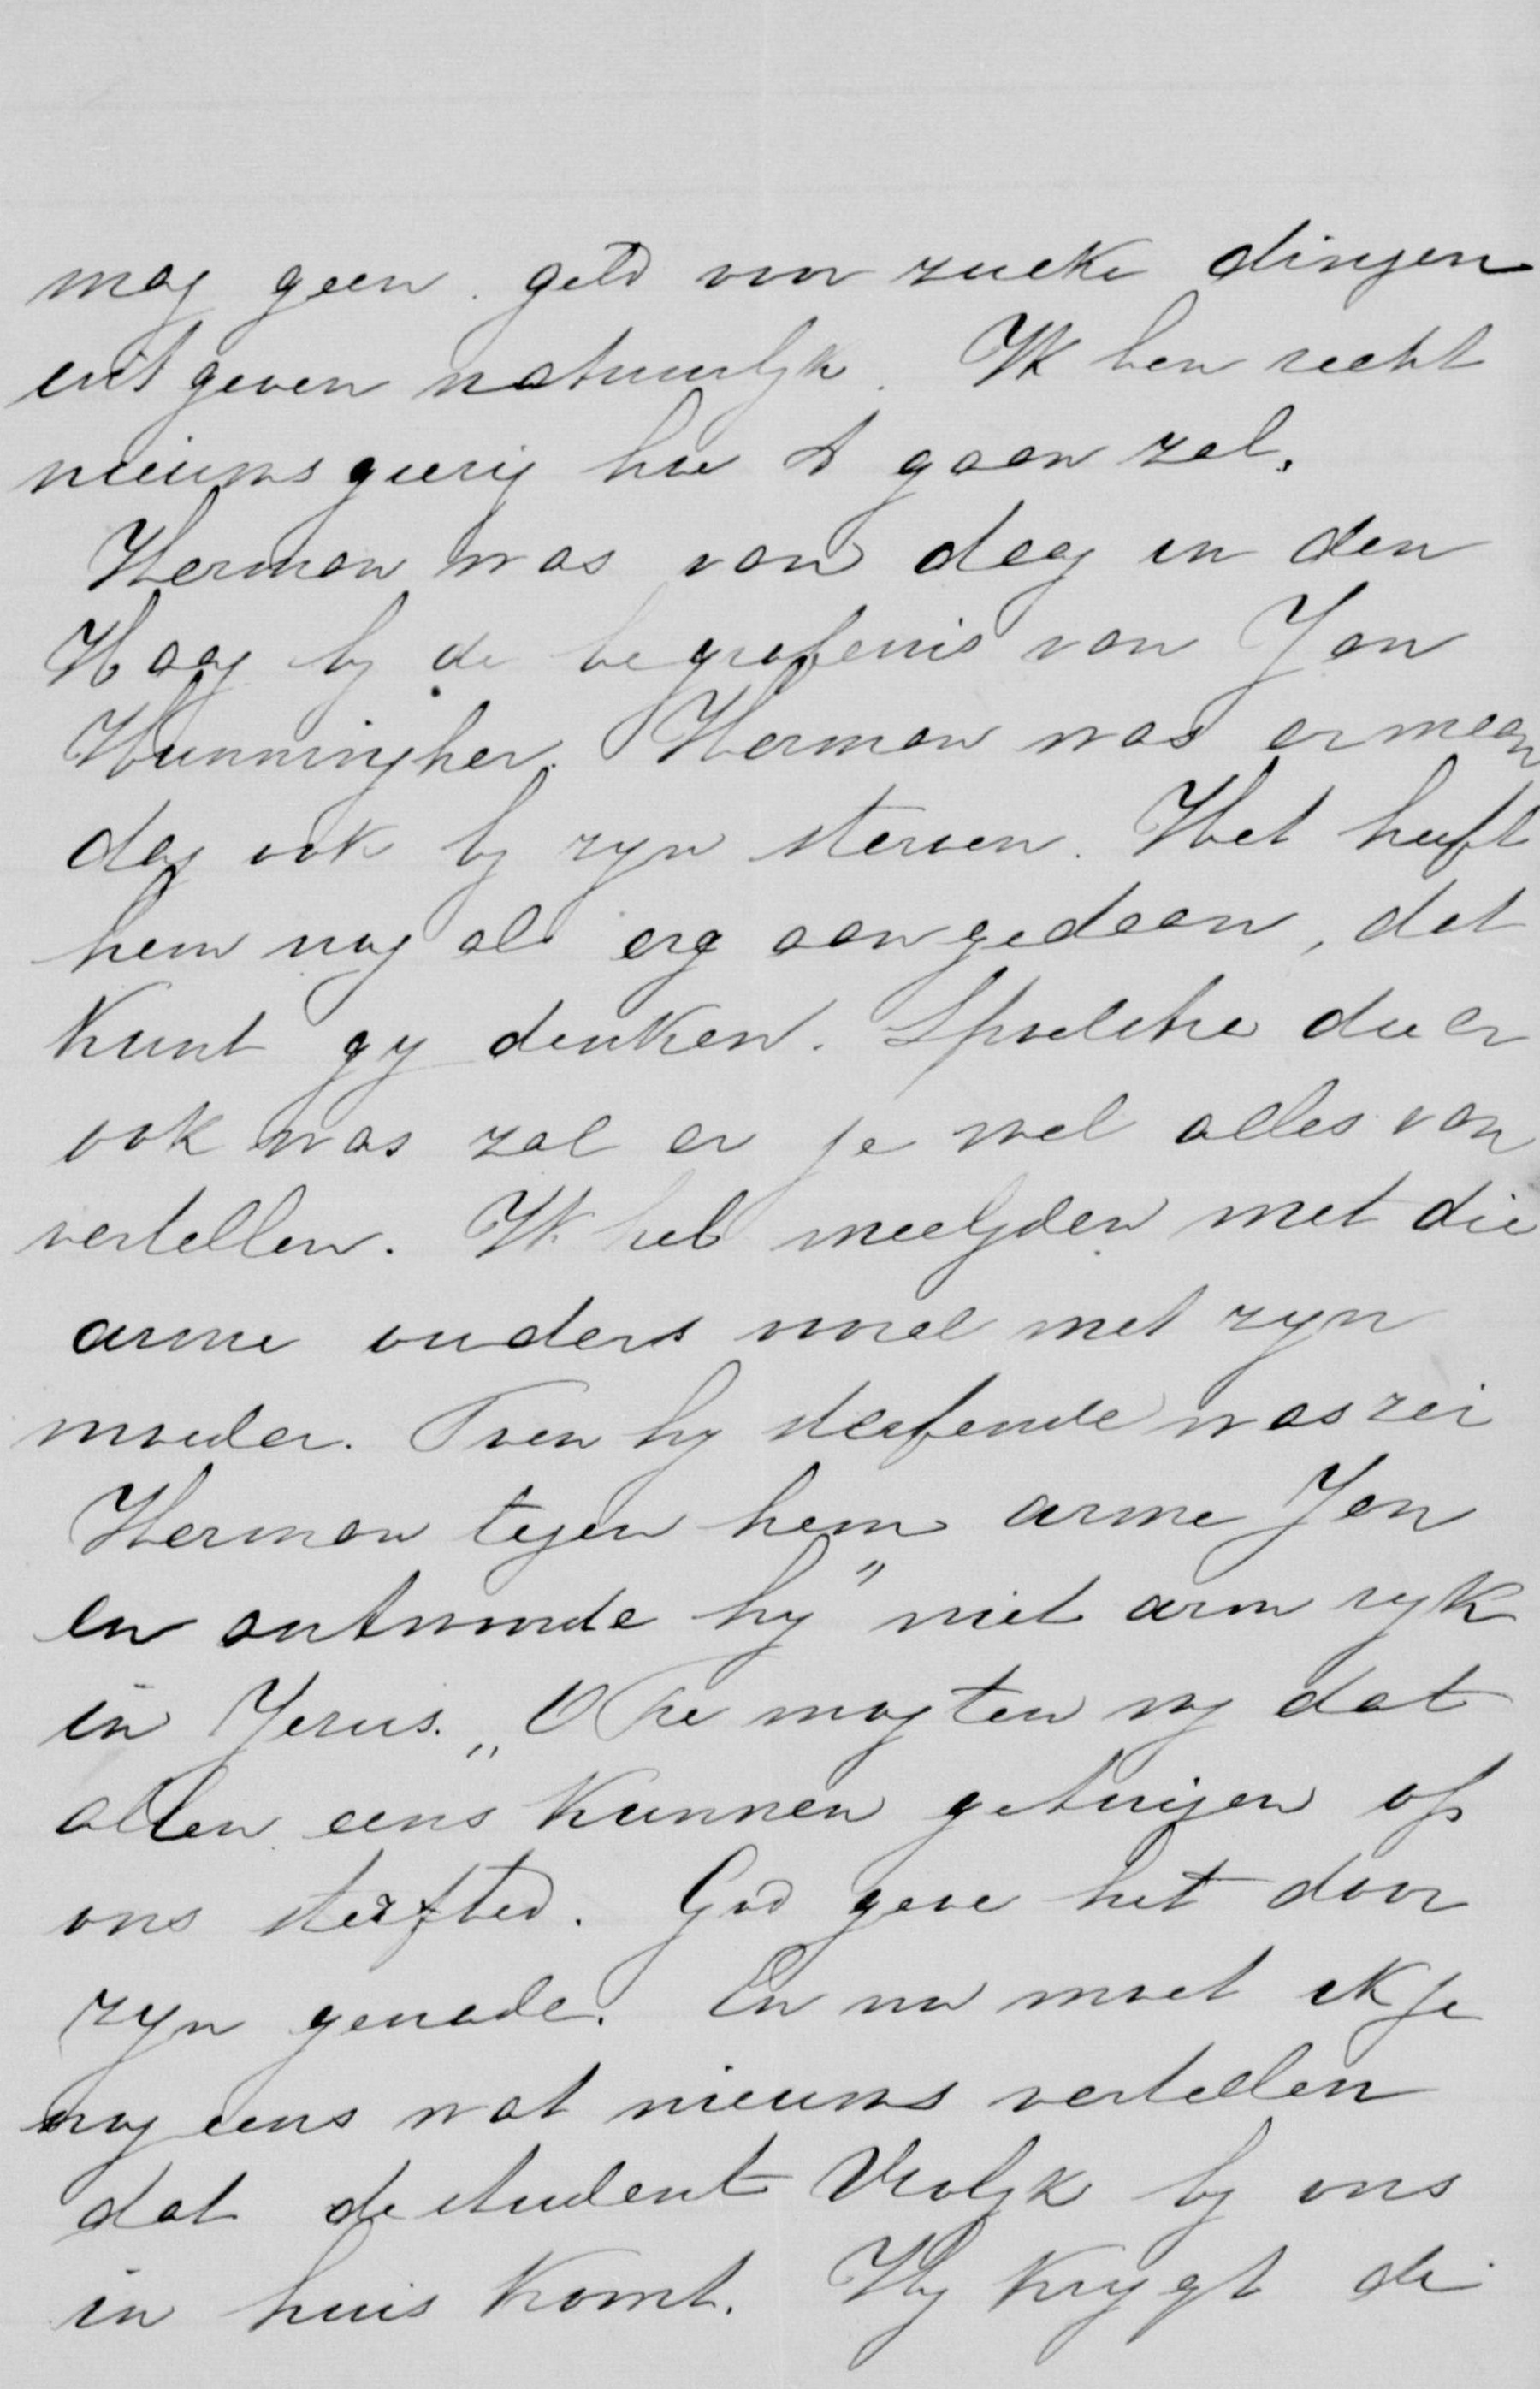 mag geen geld voor zucke dingen
uit geven natuurlyk. Ik ben recht
nieuwsgierig hoe 't gaan zal.
Herman was van daag in den
Haag by de begrafenis van Jan
Hunningher. Herman was er maan
dag ook by zyn sterven. Het heeft
hem nog al erg aangedaan, dat
kunt gy denken. die er
ook was zal er je wel alles van
vertellen. Ik heb meelyden met die
arme ouders vooral met zyn
moeder. Toen hy stervende was zei
Herman tegen hem arme Jan
en antwoorde hy "niet arm ryk
in Jezus." O Ko mogten wy dat
allen eens kunnen getuigen op
ons sterfbed. God geve het door
zyn genade. En nu moet ik je
nog eens wat nieuws vertellen
dat de student Vrolyk by ons
in huis komt. Hy krygt de